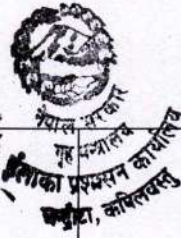 नेपाल सरकार
गृह मन्त्रालय
इलाका प्रशासन कार्यालय
कपिलवस्तु